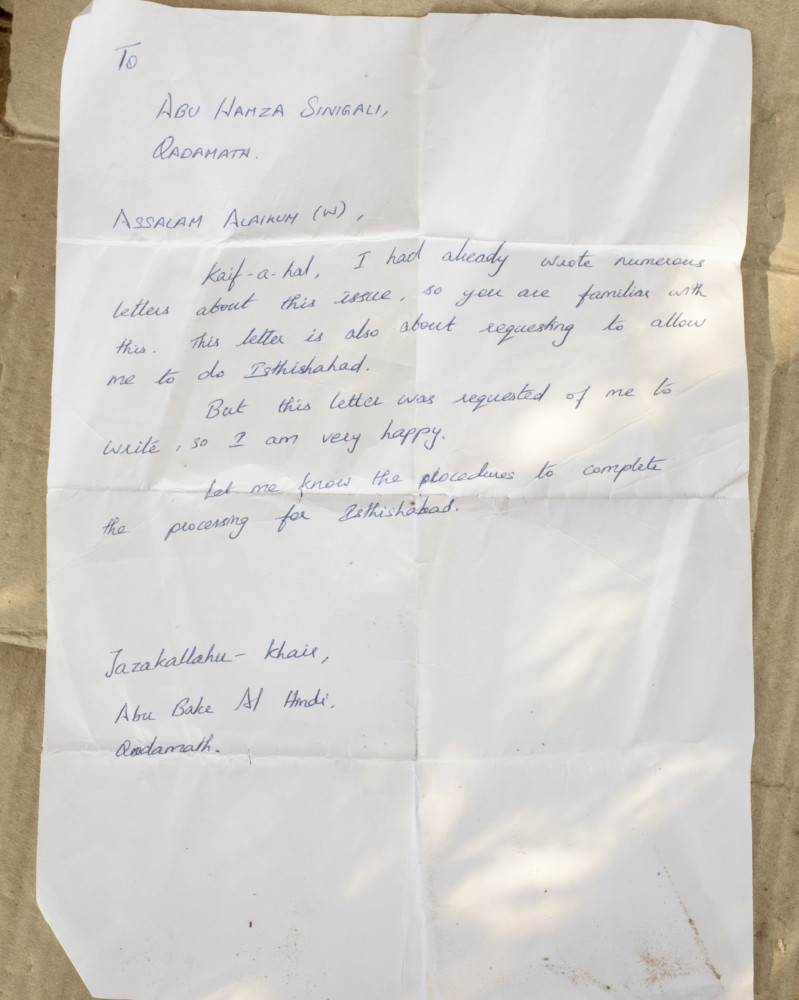 To
ABU HAMZA SINIGALI,
QADAMATH.
ASSALAM ALAIKUM (W),
Kaif-a-hal, I had already wrote numerous
letters about this issue, so you are familiar with
this. This letter is also about requesting to allow
me to do Isthishahad.
But this letter was requested of me to
write, so I am very happy.
Let me know the procedures to complete
the processing for Isthishahad.
Jazakallahu- khair,
Abu Bake Al Hindi.
Qadamath.